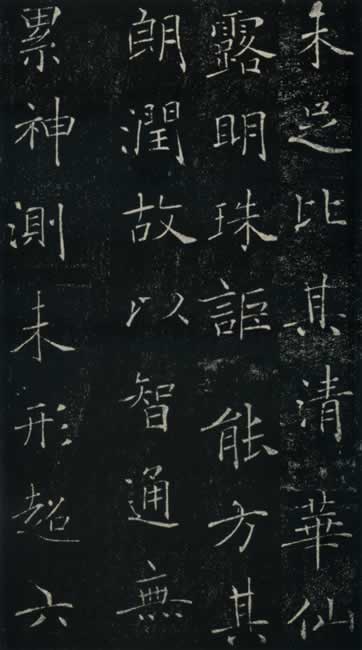 未足比其清華仙
露明珠詎能方其
朗潤故以智通無
累神測未形超六